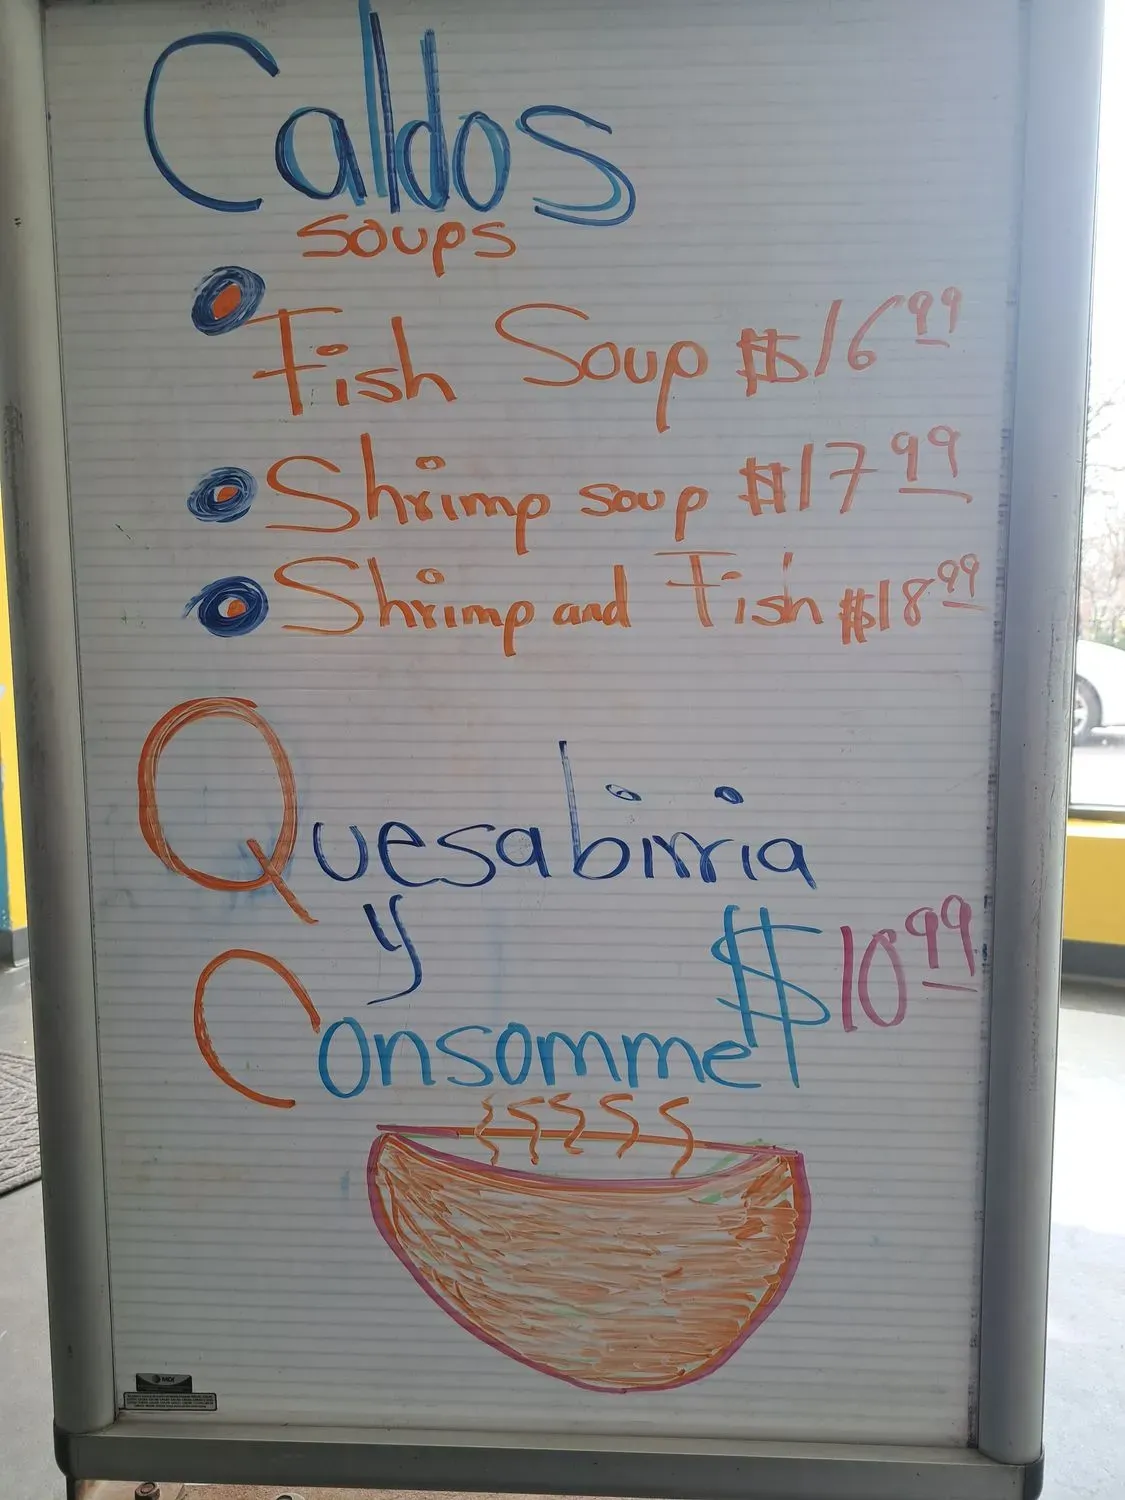 Caldos
soups
Fish Soup $16.99
Shrimp soup $17.99
Shrimp and Fish $18.99
Quesabirria
y
$10.99
Consomme
MDI